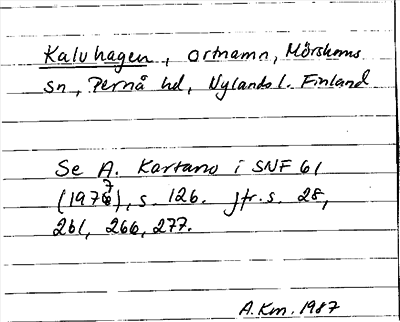 Kalvhagen, ortnamn, Mörskoms
sn, Pernå hd, Nylands l. Finland
Se A. Kartano i SNF 61
(1977), s. 126. Jfr. s. 28,
261, 266, 277.
A.Km. 1987